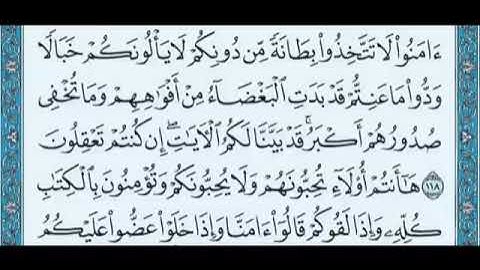 ءَامَنُوا۟ لَا تَتَّخِذُوا۟ بِطَانَةً مِّن دُونِكُمْ لَا يَأْلُونَكُمْ خَبَالًا
وَدُّوا۟ مَا عَنِتُّمْ قَدْ بَدَتِ ٱلْبَغْضَآءُ مِنْ أَفْوَٰهِهِمْ وَمَا تُخْفِى
صُدُورُهُمْ أَكْبَرُ ۚ قَدْ بَيَّنَّا لَكُمُ ٱلْءَايَٰتِ ۖ إِن كُنتُمْ تَعْقِلُونَ
﴿١١٨﴾ هَٰٓأَنتُمْ أُو۟لَآءِ تُحِبُّونَهُمْ وَلَا يُحِبُّونَكُمْ وَتُؤْمِنُونَ بِٱلْكِتَٰبِ
كُلِّهِۦ وَإِذَا لَقُوكُمْ قَالُوٓا۟ ءَامَنَّا وَإِذَا خَلَوْا۟ عَضُّوا۟ عَلَيْكُمُ